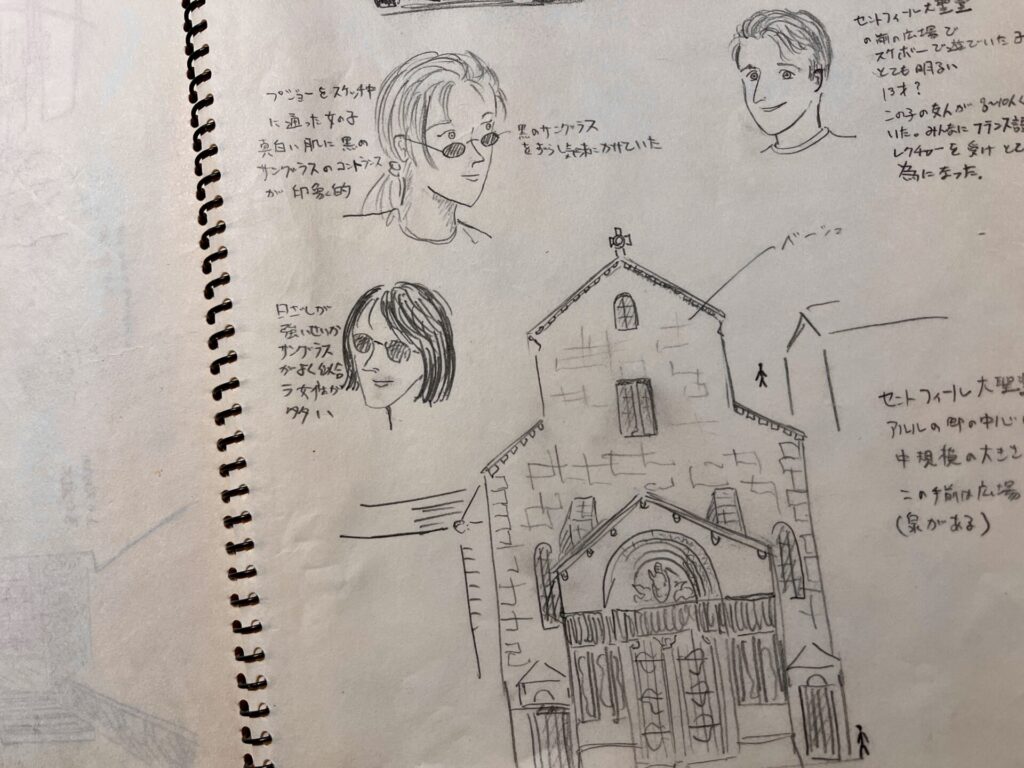 プジョーをスケッチ中
に通った女の子
真白い肌に黒の
サングラスのコントラース
が印象的
黒のサングラス
をずらし気味にかけていた
セントフィール大聖堂
の前の広場で
スケボーで遊でいた子
とても明るい
13才?
この子の友人が8〜10人く
いた。みんなにフランス語
レクチャーを受けとて
為になった。
ベージュ
日ざしが
強いせいか
サングラス
がよく似合
う女性が
多い
セントフィール大聖堂
アルルの町の中心
中規模の大きさ
この手前は広場
(泉がある)